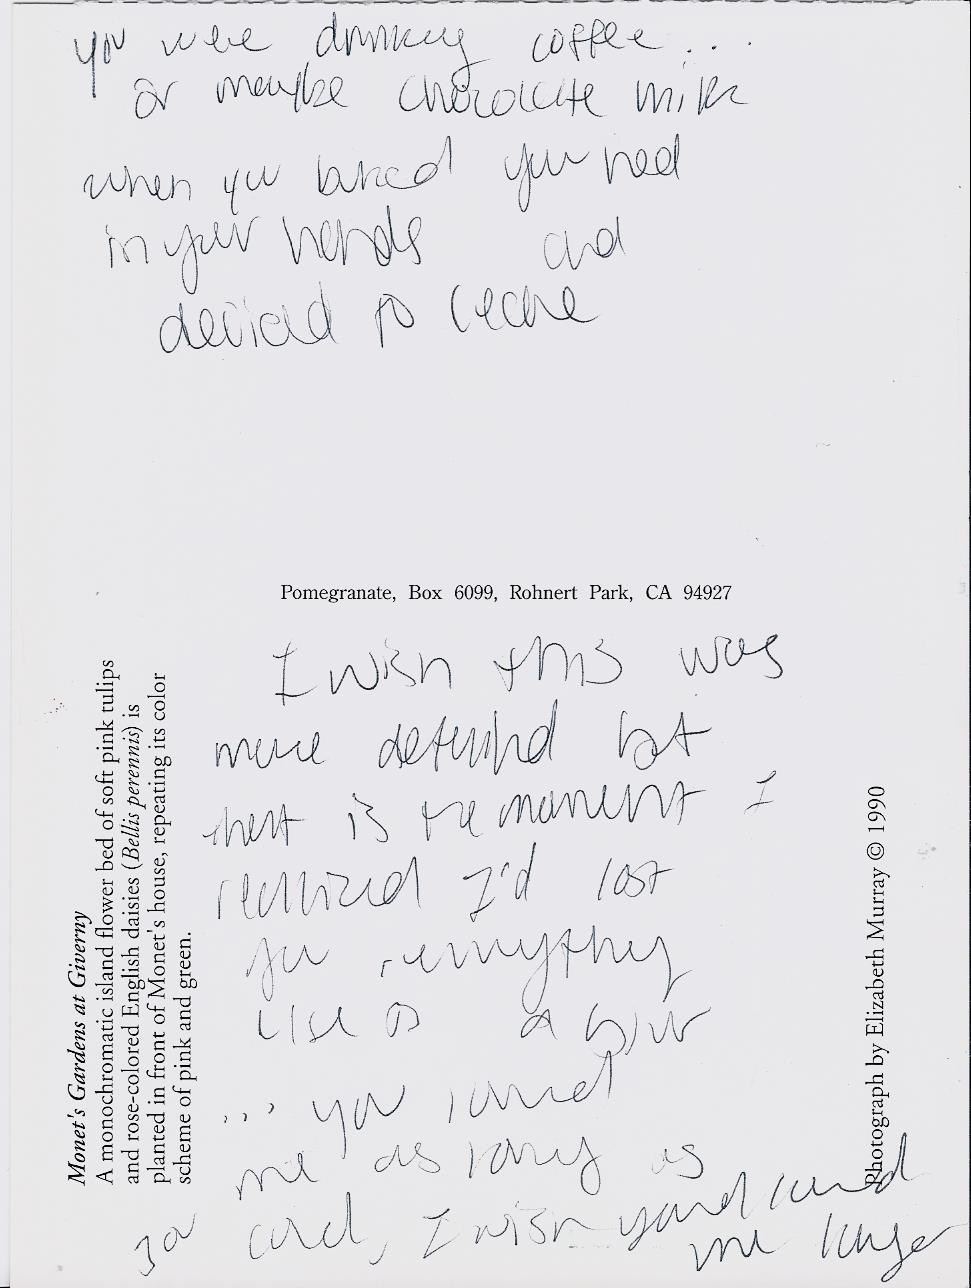 you were drinking coffee...
or maybe chocolate milk
when you buried your head
in your hands and
decided to leave
Pomegranate, Box 6099, Rohnert Park, CA 94927
I wish this was
more detailed but
that is the moment I
realized I'd lost
you, everything
else is a blur
... you loved
me as long as
you could, I wish you'd loved
me longer
Monet's Gardens at Giverny
A monochromatic island flower bed of soft pink tulips
and rose-colored English daisies (Bellis perennis) is
planted in front of Monet's house, repeating its color
scheme of pink and green.
Photograph by Elizabeth Murray © 1990